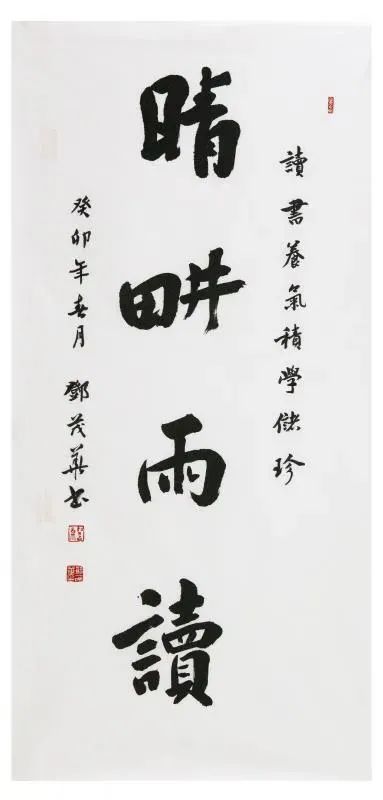 讀書養氣積學儲珍
晴畊雨讀
癸卯年春月 鄧茂華書